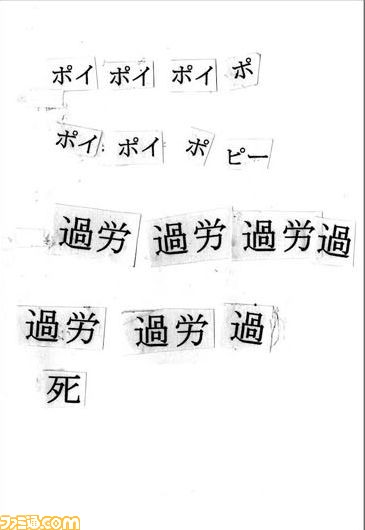 ポイ ポイ ポイ ポ
ポイ ポイ ポ ピー
過労 過労 過労過
過労 過労 過
死
ファミ通.com